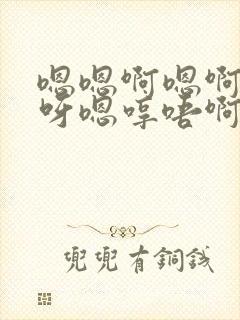 嗯嗯啊嗯啊
呀嗯哼唔啊
兜兜有銅錢